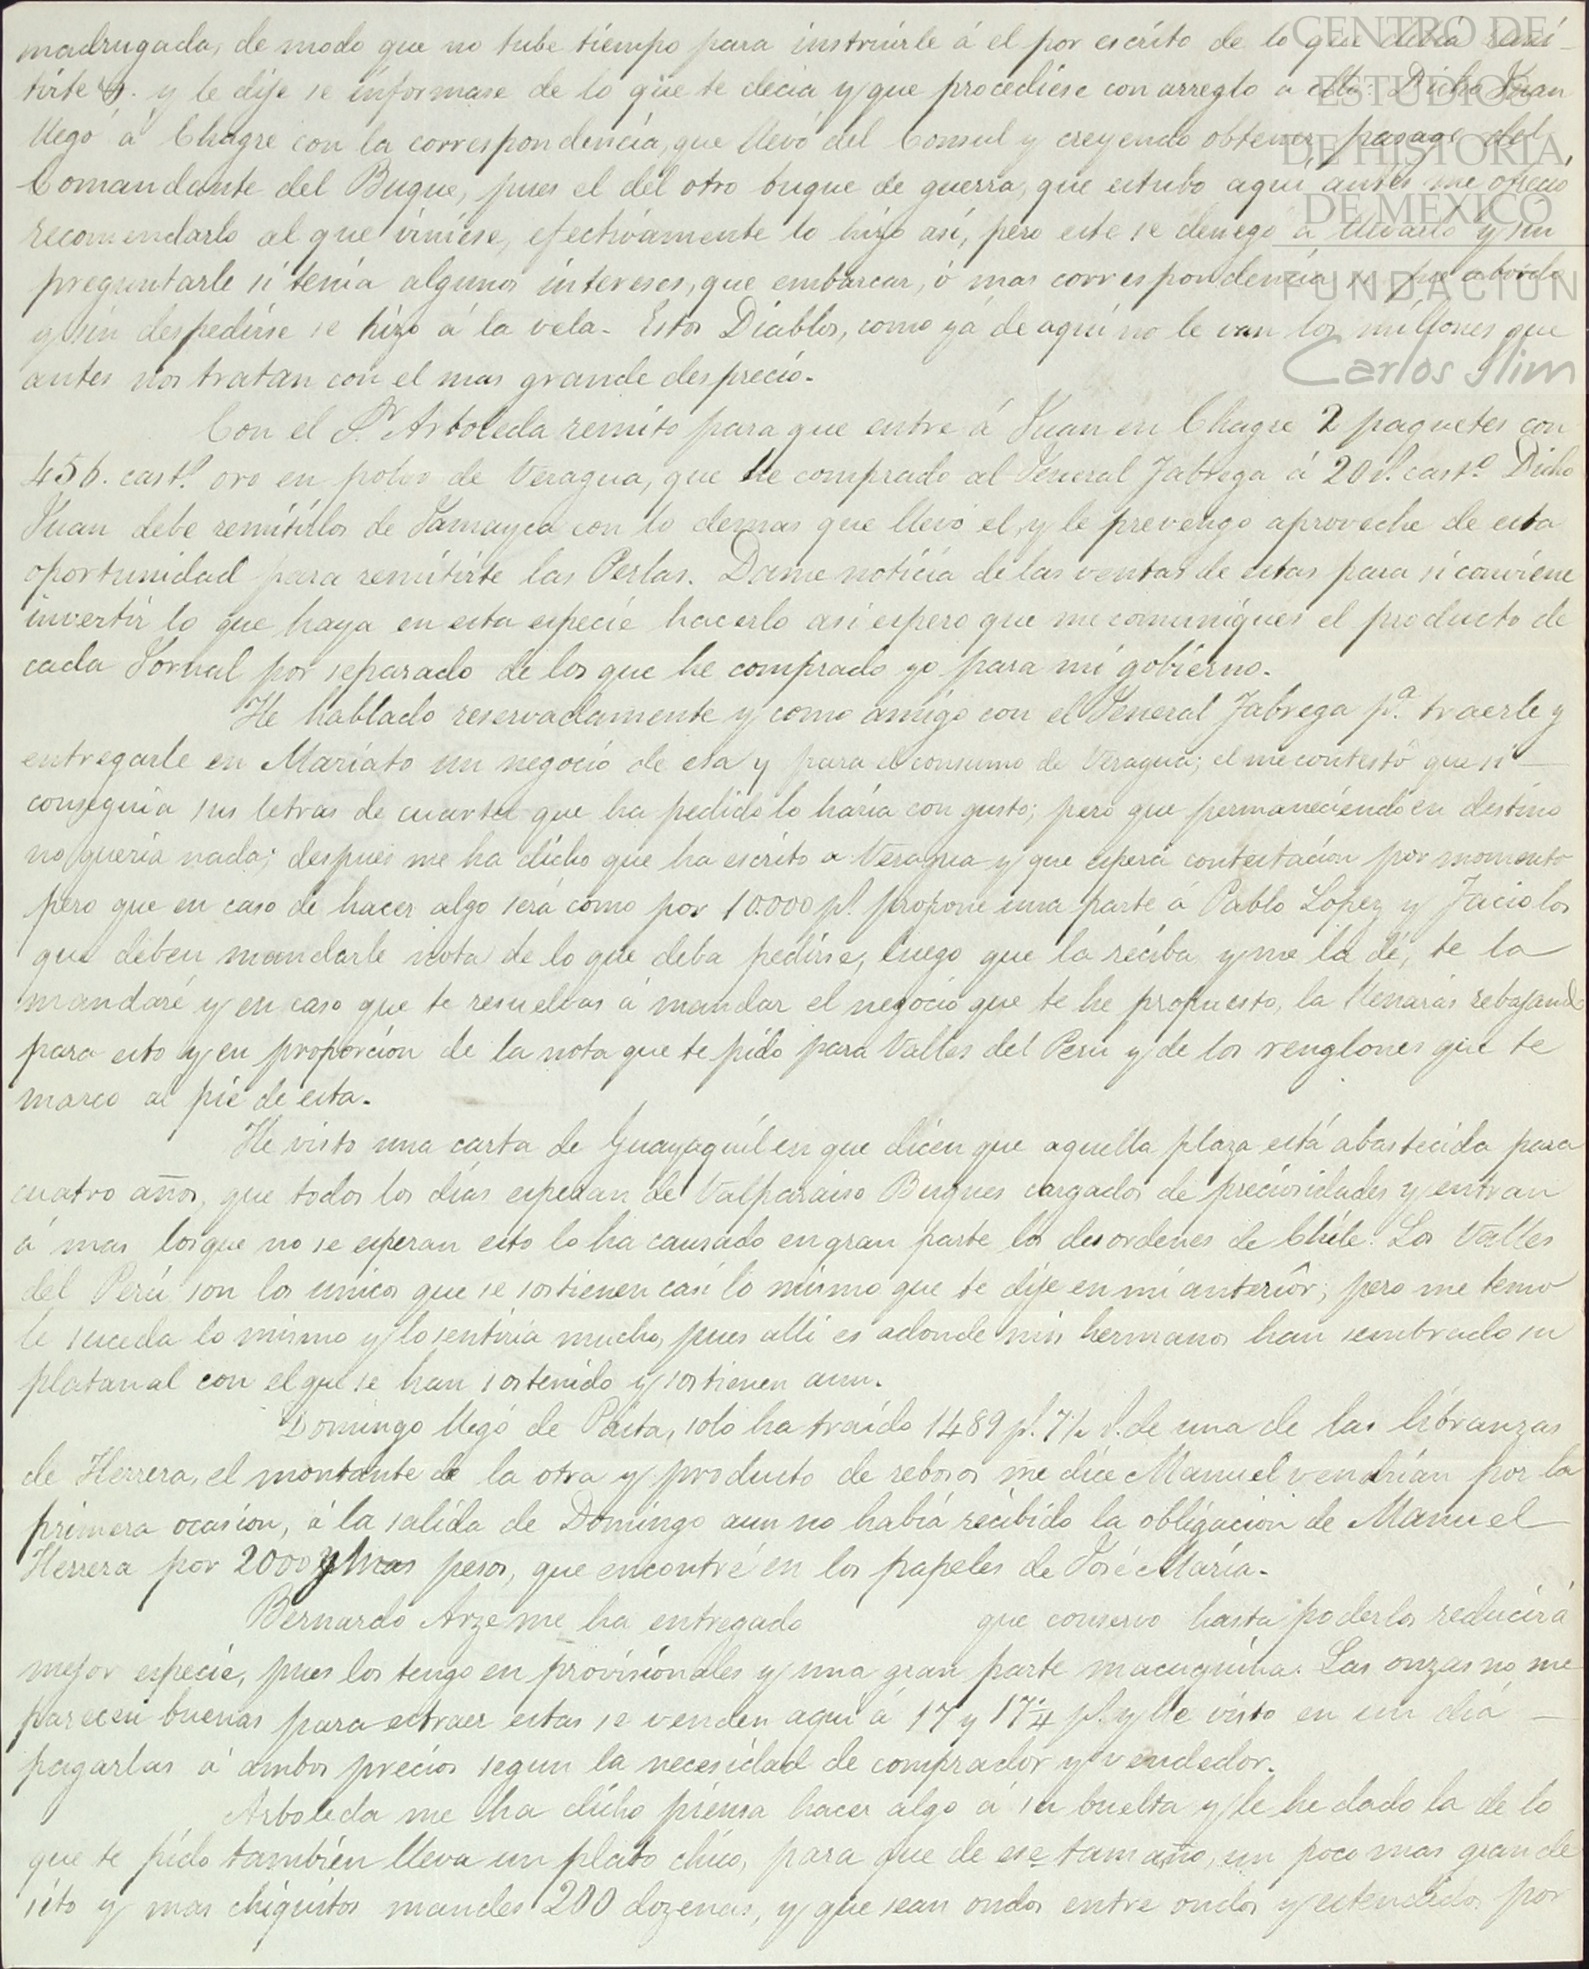 madrugada, de modo que no tube tiempo para instruirle á el por escrito de lo que debia remi-
tirte y le dije se informase de lo que te decia y que procediese con arreglo a ello. Dicho Juan
llegó á Chagre con la correspondencia, que llevó del Consul y creyendo obtener pasage del
Comandante del Buque, pues el del otro buque de guerra, que estubo aquí antes me ofreció
recomendarlo al que viniese, efectivamente lo hizo asi, pero este se denegó á llevarlo y sin
preguntarle si tenia algunos intereses, que embarcar, ó mas correspondencia se fue abordo
y sin despedirse se hizo á la vela. Estos Diablos, como yá de aquí no le van los millones que
antes nos tratan con el mas grande desprecio.
Con el Sr. Arboleda remito para que entre á Juan en Chagre 2 paquetes con
456. casto. oro en polvo de Veragua, que he comprado al General Fabrega á 20 r. casto. Dicho
Juan debe remitirlos de Jamayca con lo demas que llevó el, y le prevengo aproveche de esta
oportunidad para remitirte las Perlas. Dame noticia de las ventas de estas para si conviene
invertir lo que haya en esta especie hacerlo asi espero que me comuniques el producto de
cada Jornal por separado de los que he comprado yo para mi gobierno.
He hablado reservadamente y como amigo con el General Fabrega pa. traerle y
entregarle en Mariato un negocio de esa y para el consumo de Veragua; el me contestó que si
conseguia sus letras de cuartel que ha pedido lo haria con gusto; pero que permaneciendo en destino
no queria nada; despues me ha dicho que ha escrito a Veragua y que espera contestacion por momento
pero que en caso de hacer algo será como por 10.000 ps. propone una parte á Pablo Lopez y Facio los
que deben mandarle nota de lo que deba pedirse, luego que la reciba y me la dé, te la
mandaré y en caso que te resuelvas á mandar el negocio que te he propuesto, la llenarás rebajand
para esto y en proporcion de la nota que te pido para Valles del Perú y de los renglones que te
marco al pie de esta.
He visto una carta de Guayaquil en que dicen que aquella plaza está abastecida para
cuatro años, que todos los dias esperan de Valparaiso Buques cargados de preciosidades y entran
á mas los que no se esperan esto lo ha causado en gran parte los desordenes de Chile. Los Valles
del Perú son los unicos que se sostienen casi lo mismo que te dije en mi anterior; pero me temo
le suceda lo mismo y lo sentiria mucho, pues alli es adonde mis hermanos han sembrado su
platanal con el que se han sostenido y sostienen aun.
Domingo llegó de Paita, solo ha traido 1489 ps. 7½ r. de una de las libranzas
de Herrera, el montante de la otra y producto de rebosos me dice Manuel vendrian por la
primera ocasion, á la salida de Domingo aun no habia recibido la obligacion de Manuel
Herrera por 2000 y mas pesos, que encontré en los papeles de José Maria.
Bernardo Arze me ha entregado que conservo hasta poderlos reducir á
mejor especie, pues los tengo en provisionales y una gran parte macuquina. Las onzas no me
parecen buenas para extraer estas se venden aquí á 17 y 17¼ ps. y he visto en un dia
pagarlas á ambos precios segun la necesidad de comprador y vendedor.
Arboleda me ha dicho piensa hacer algo á su buelta y le he dado la de lo
que te pido tambien lleva un plato chico, para que de ese tamaño, un poco mas grande
sito y mas chiquitos mandes 200 dozenas, y que sean ondos entre ondos y estendidos por
CENTRO DE
ESTUDIOS
DE HISTORIA
DE MÉXICO
FUNDACIÓN
Carlos Slim